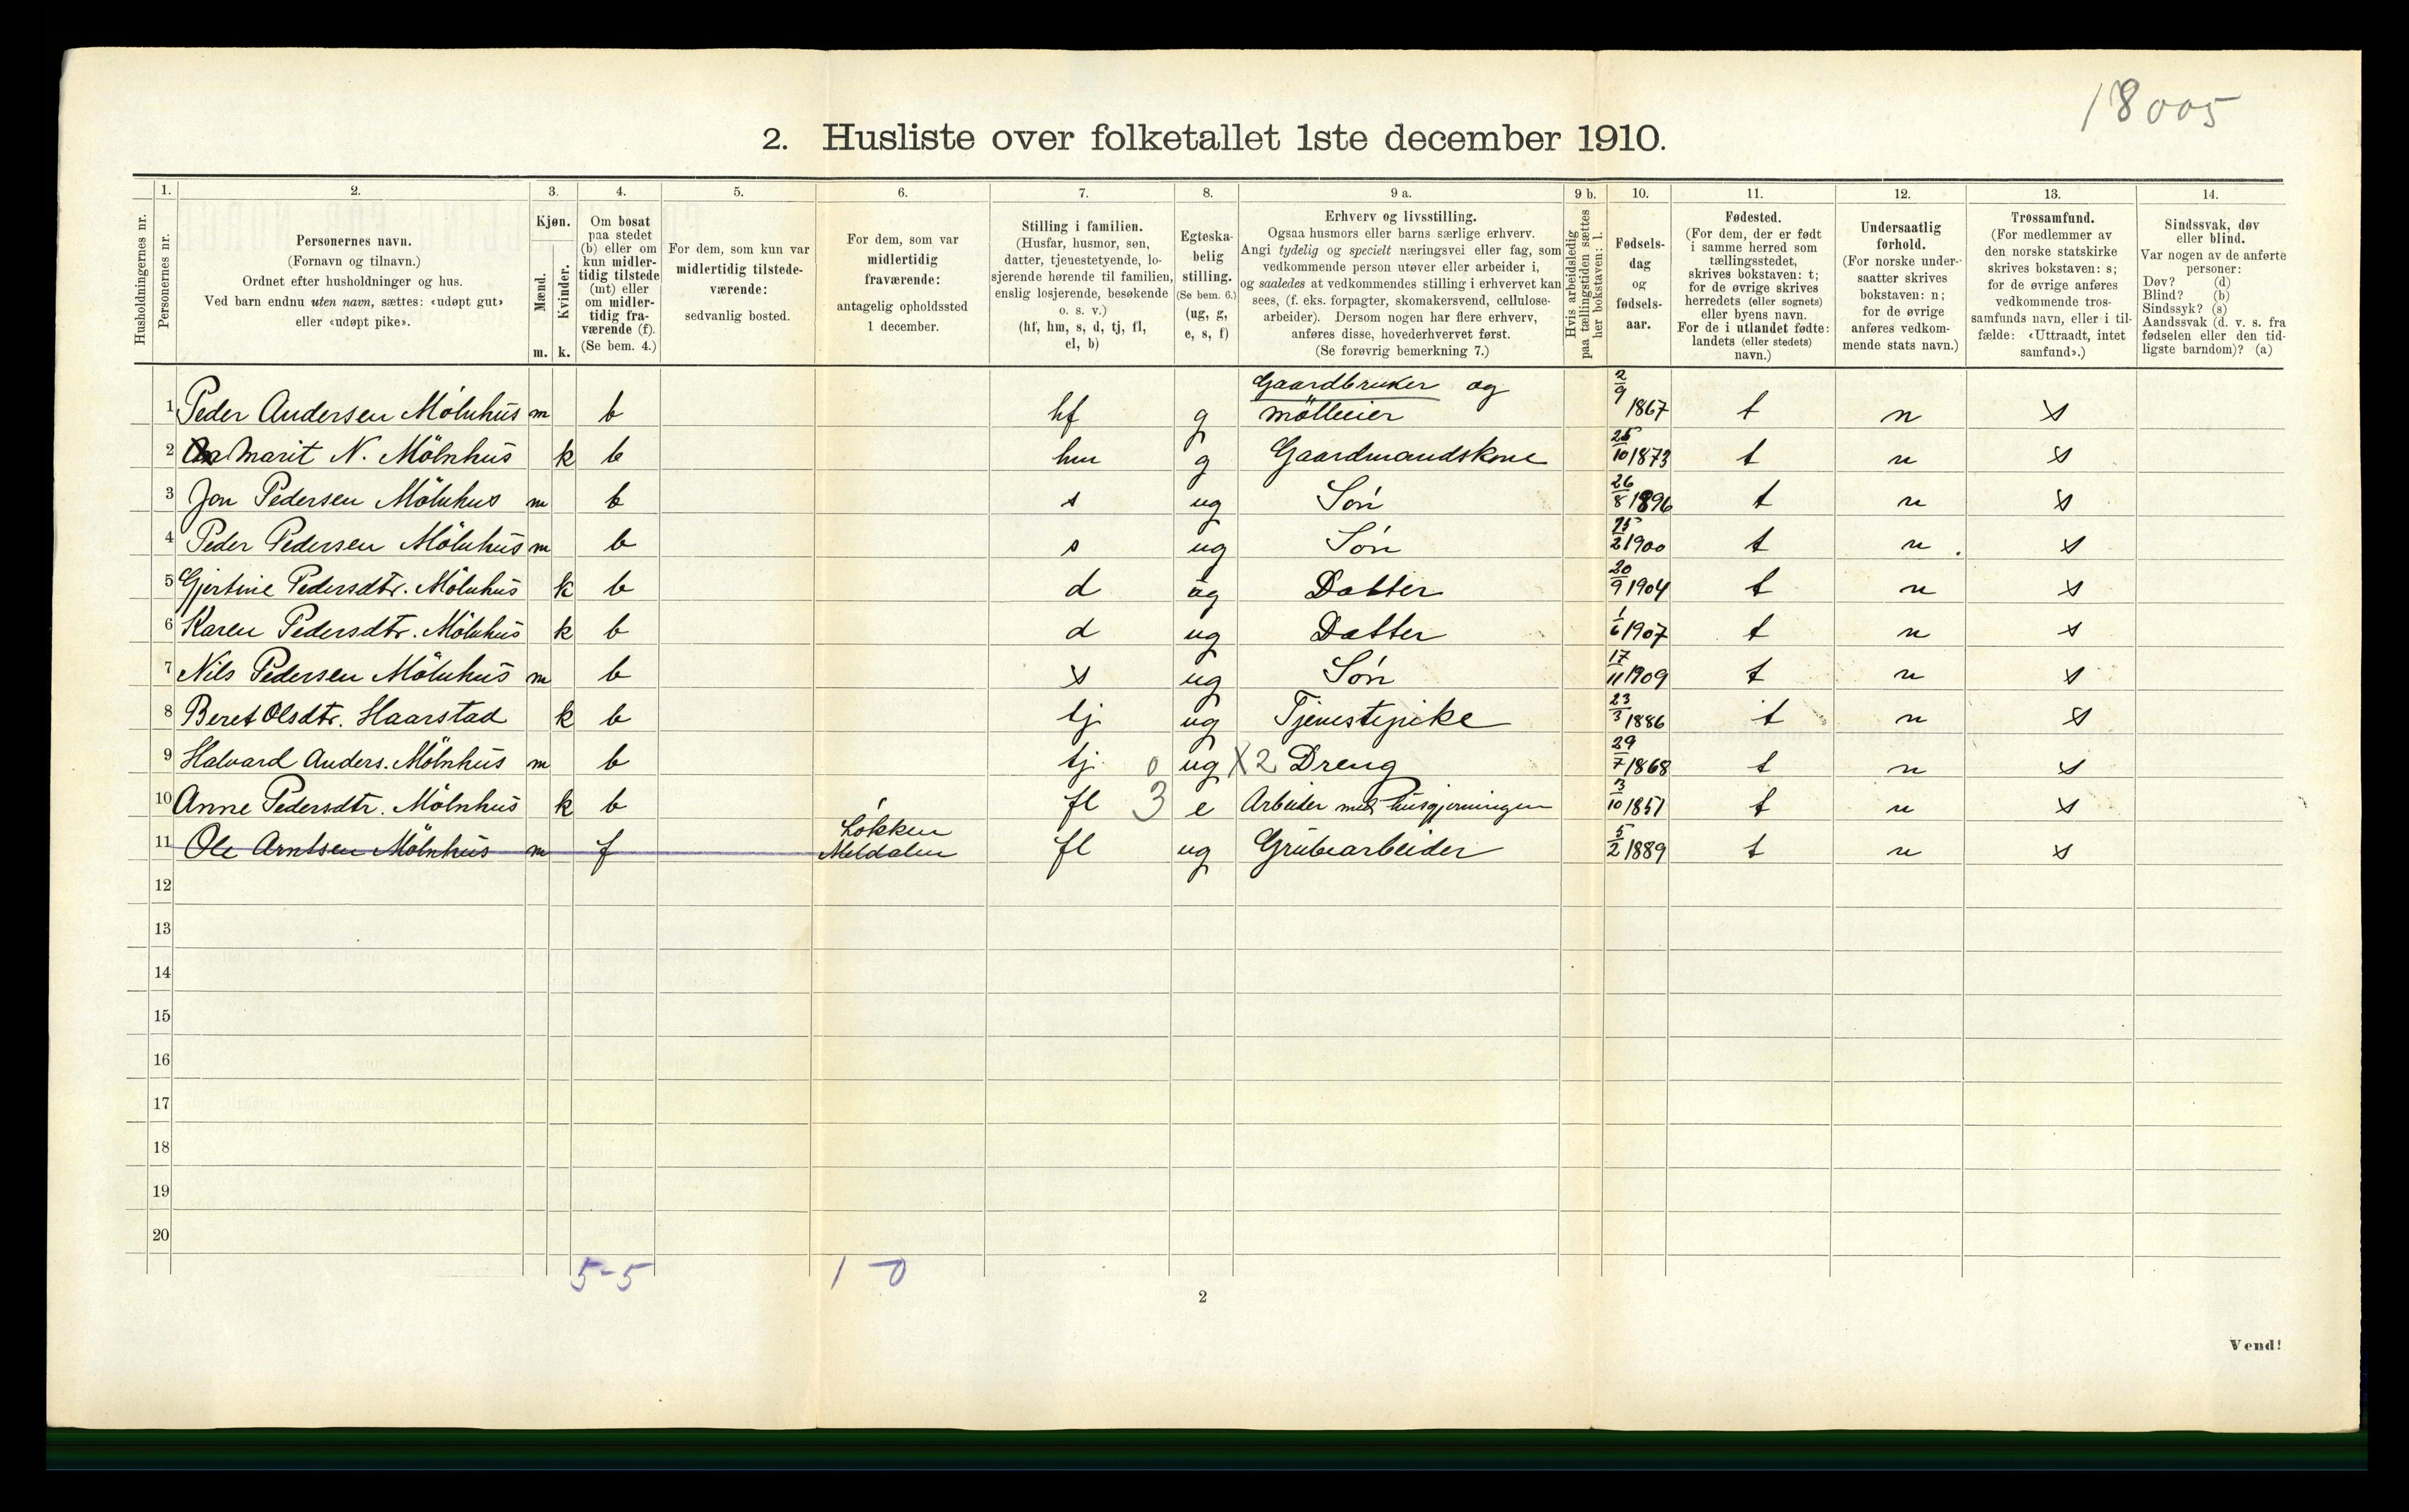 18005
2. Husliste over folketallet 1ste december 1910.
Husholdningernes nr.
1.
Personernes nr.
2.
Personernes navn.
(Fornavn og tilnavn.)
Ordnet efter husholdninger og hus.
Ved barn endnu uten navn, sættes: «udøpt gut»
eller «udøpt pike».
3.
Kjøn.
Mænd.
Kvinder.
m. k.
4.
Om bosat
paa stedet
(b) eller om
kun midler-
tidig tilstede
(mt) eller
om midler-
tidig fra-
værende (f).
(Se bem. 4.)
5.
For dem, som kun var
midlertidig tilstede-
værende:
sedvanlig bosted.
6.
For dem, som var
midlertidig
fraværende:
antagelig opholdssted
1 december.
7.
Stilling i familien.
(Husfar, husmor, søn,
datter, tjenestetyende, lo-
sjerende hørende til familien,
enslig losjerende, besøkende
o. s. v.)
(hf, hm, s, d, tj, fl,
el, b)
8.
Egteska-
belig
stilling.
(Se bem. 6.)
(ug, g,
e, s, f)
9 a.
Erhverv og livsstilling.
Ogsaa husmors eller barns særlige erhverv.
Angi tydelig og specielt næringsvei eller fag, som
vedkommende person utøver eller arbeider i,
og saaledes at vedkommendes stilling i erhvervet kan
sees, (f. eks. forpagter, skomakersvend, cellulose-
arbeider). Dersom nogen har flere erhverv,
anføres disse, hovederhvervet først.
(Se forøvrig bemerkning 7.)
9 b.
Hvis arbeidsledig
paa tællingstiden sættes
her bokstaven: l.
10.
Fødsels-
dag
og
fødsels-
aar.
11.
Fødested.
(For dem, der er født
i samme herred som
tællingsstedet,
skrives bokstaven: t;
for de øvrige skrives
herredets (eller sognets)
eller byens navn.
For de i utlandet fødte:
landets (eller stedets)
navn.)
12.
Undersaatlig
forhold.
(For norske under-
saatter skrives
bokstaven: n;
for de øvrige
anføres vedkom-
mende stats navn.)
13.
Trossamfund.
(For medlemmer av
den norske statskirke
skrives bokstaven: s;
for de øvrige anføres
vedkommende tros-
samfunds navn, eller i til-
fælde: «Uttraadt, intet
samfund».)
14.
Sindssvak, døv
eller blind.
Var nogen av de anførte
personer:
Døv? (d)
Blind? (b)
Sindssyk? (s)
Aandssvak (d. v. s. fra
fødselen eller den tid-
ligste barndom)? (a)
1 Peder Andersen Mölnhus m b hf g Gaardbruker og mölleier 2/9 1867 t n s
2 Marit N. Mölnhus k b hm g Gaardmandskone 25/10 1873 t n s
3 Jon Pedersen Mölnhus m b s ug Søn 26/8 1896 t n s
4 Peder Pedersen Mölnhus m b s ug Søn 25/2 1900 t n s
5 Gjertine Pedersdtr. Mölnhus k b d ug Datter 20/9 1904 t n s
6 Karen Pedersdtr. Mölnhus k b d ug Datter 1/6 1907 t n s
7 Nils Pedersen Mölnhus m b s ug Søn 17/11 1909 t n s
8 Beret Olsdtr. Haarstad k b tj ug Tjenestepike 23/3 1886 t n s
9 Halvard Anders. Mölnhus m b tj 0 ug X2 Dreng 29/7 1868 t n s
10 Anne Pedersdtr. Mölnhus k b fl 3 e Arbeider med husgjerningen 3/10 1851 t n s
11 Ole Arntsen Mölnhus m f Løkken Meldalen fl ug Grubearbeider 5/2 1889 t n s
12
13
14
15
16
17
18
19
20
5-5 1 0
2
Vend!